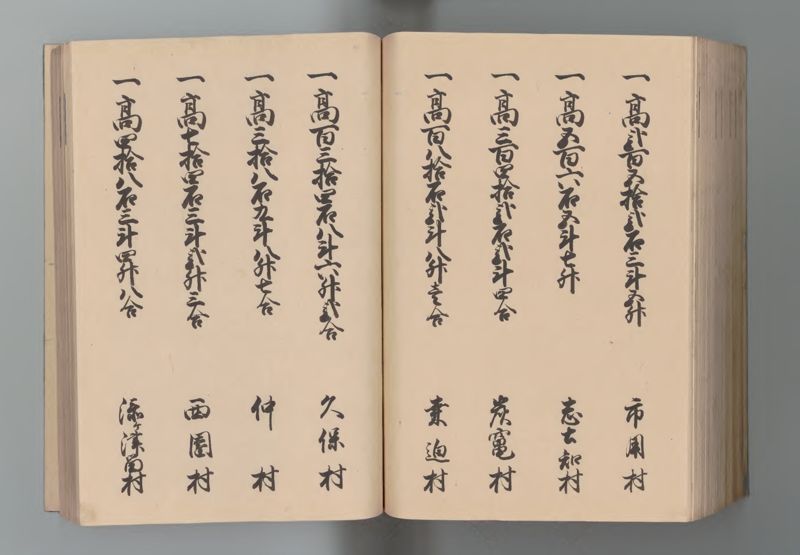 一高弐百五拾弐石三斗五舛 市用村
一高五百六石五斗七舛 志士知村
一高三百四拾弐石弐斗四合 炭竃村
一高百八拾石弐斗八舛壱合 桑迫村
一高百三拾四石八斗六舛弐合 久保村
一高三拾八石九斗八舛七合 仲村
一高七拾四石三斗弐舛三合 西園村
一高四拾八石三斗四舛八合 添ヶ津留村